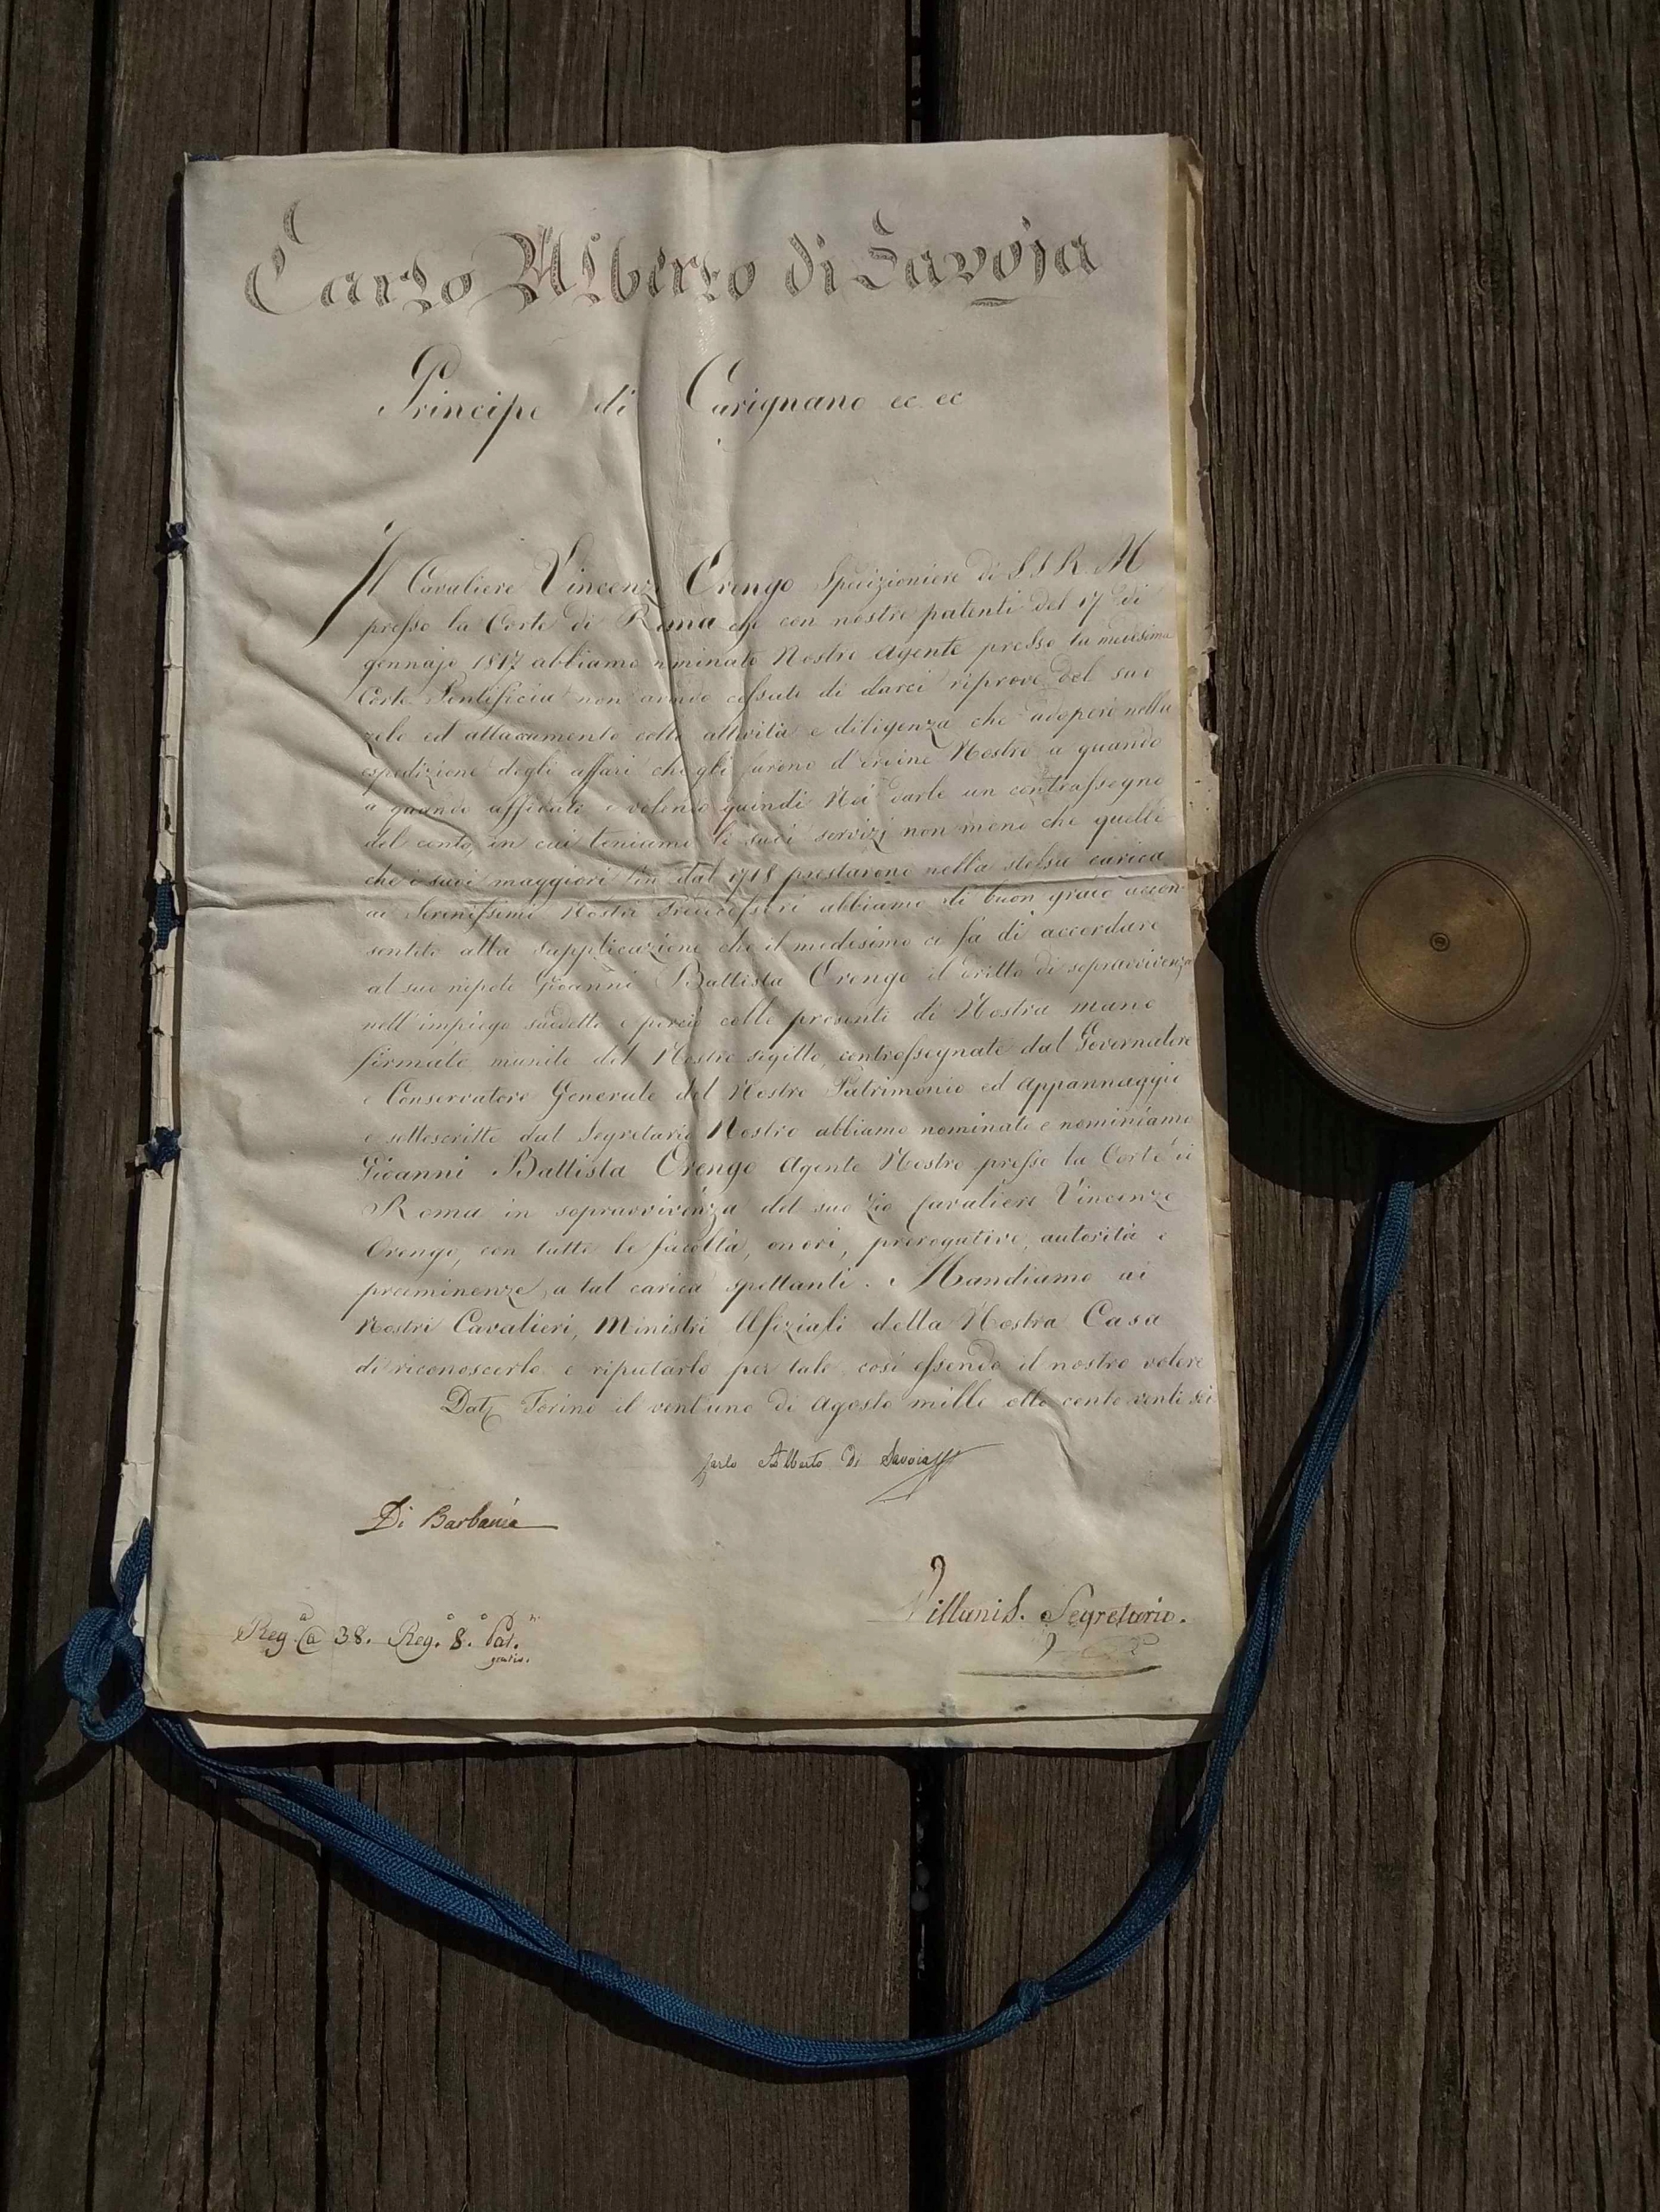 Carlo Alberto di Savoja
Principe di Carignano ec. ec
Il Cavaliere Vincenzo Orengo Spedizioniere di S.S.R.M
presso la Corte di Roma che con nostre patenti del 17 di
gennajo 1817 abbiamo nominato Nostro Agente presso la medesima
Corte Pontificia non avendo cessato di darci riprove del suo
zelo ed attaccamento colla attività e diligenza che adoperò nella
spedizione degli affari che gli furono d'ordine Nostro a quando
a quando affidati e volendo quindi Noi darle un contrassegno
del conto, in cui teniamo li suoi servizj non meno che quelli
che i suoi maggiori fin dal 1718 prestarono nella stessa carica
ai Serenissimi Nostri Predecessori abbiamo di buon grado accon
sentito alla supplicazione che il medesimo ci fa di accordare
al suo nipote Gioanni Battista Orengo il dritto di sopravvivenza
nell'impiego suddetto e perciò colle presenti di Nostra mano
firmate munite del Nostro sigillo, controssegnate dal Governatore
e Conservatore Generale del Nostro Patrimonio ed Appannaggio
e sottoscritte dal Segretario Nostro abbiamo nominato e nominiamo
Gioanni Battista Orengo Agente Nostro presso la Corte di
Roma in sopravvivenza del suo Zio Cavaliere Vincenzo
Orengo, con tutte le facoltà, onori, prerogative, autorità e
preminenze, a tal carica spettanti. Mandiamo ai
Nostri Cavalieri, Ministri Ufiziali della Nostra Casa
di riconoscerlo e riputarlo per tale, così essendo il nostro volere
Dat. Torino il ventuno di Agosto mille otto cento venti sei
Carlo Alberto Di Savoia
Di Barbania
Villanis. Segretario.
Reg. Ca 38. Reg.° 8.° Pat.
gratis.